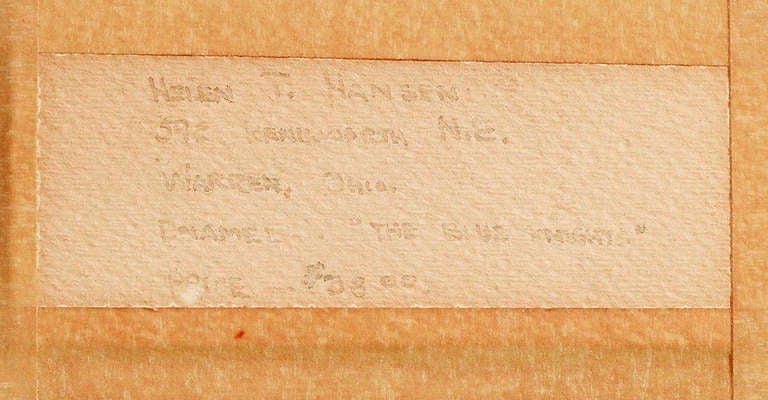 HELEN T. HANSEN
592 KENILWORTH N.E.
WARREN, OHIO.
ENAMEL "THE BLUE KNIGHTS"
PRICE